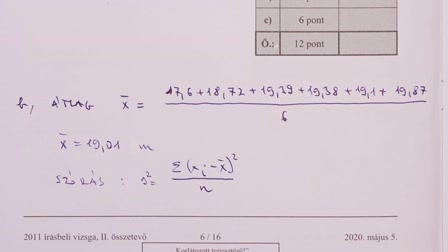 c) 6 pont
Ö.: 12 pont
b, ÁTLAG x̄ = (17,6 + 18,72 + 19,39 + 19,38 + 19,1 + 19,87) / 6
x̄ = 19,01 m
SZÓRÁS : s² = Σ(xᵢ - x̄)² / n
2011 írásbeli vizsga, II. összetevő 6 / 16 2020. május 5.
Korlátozott terjesztésű!